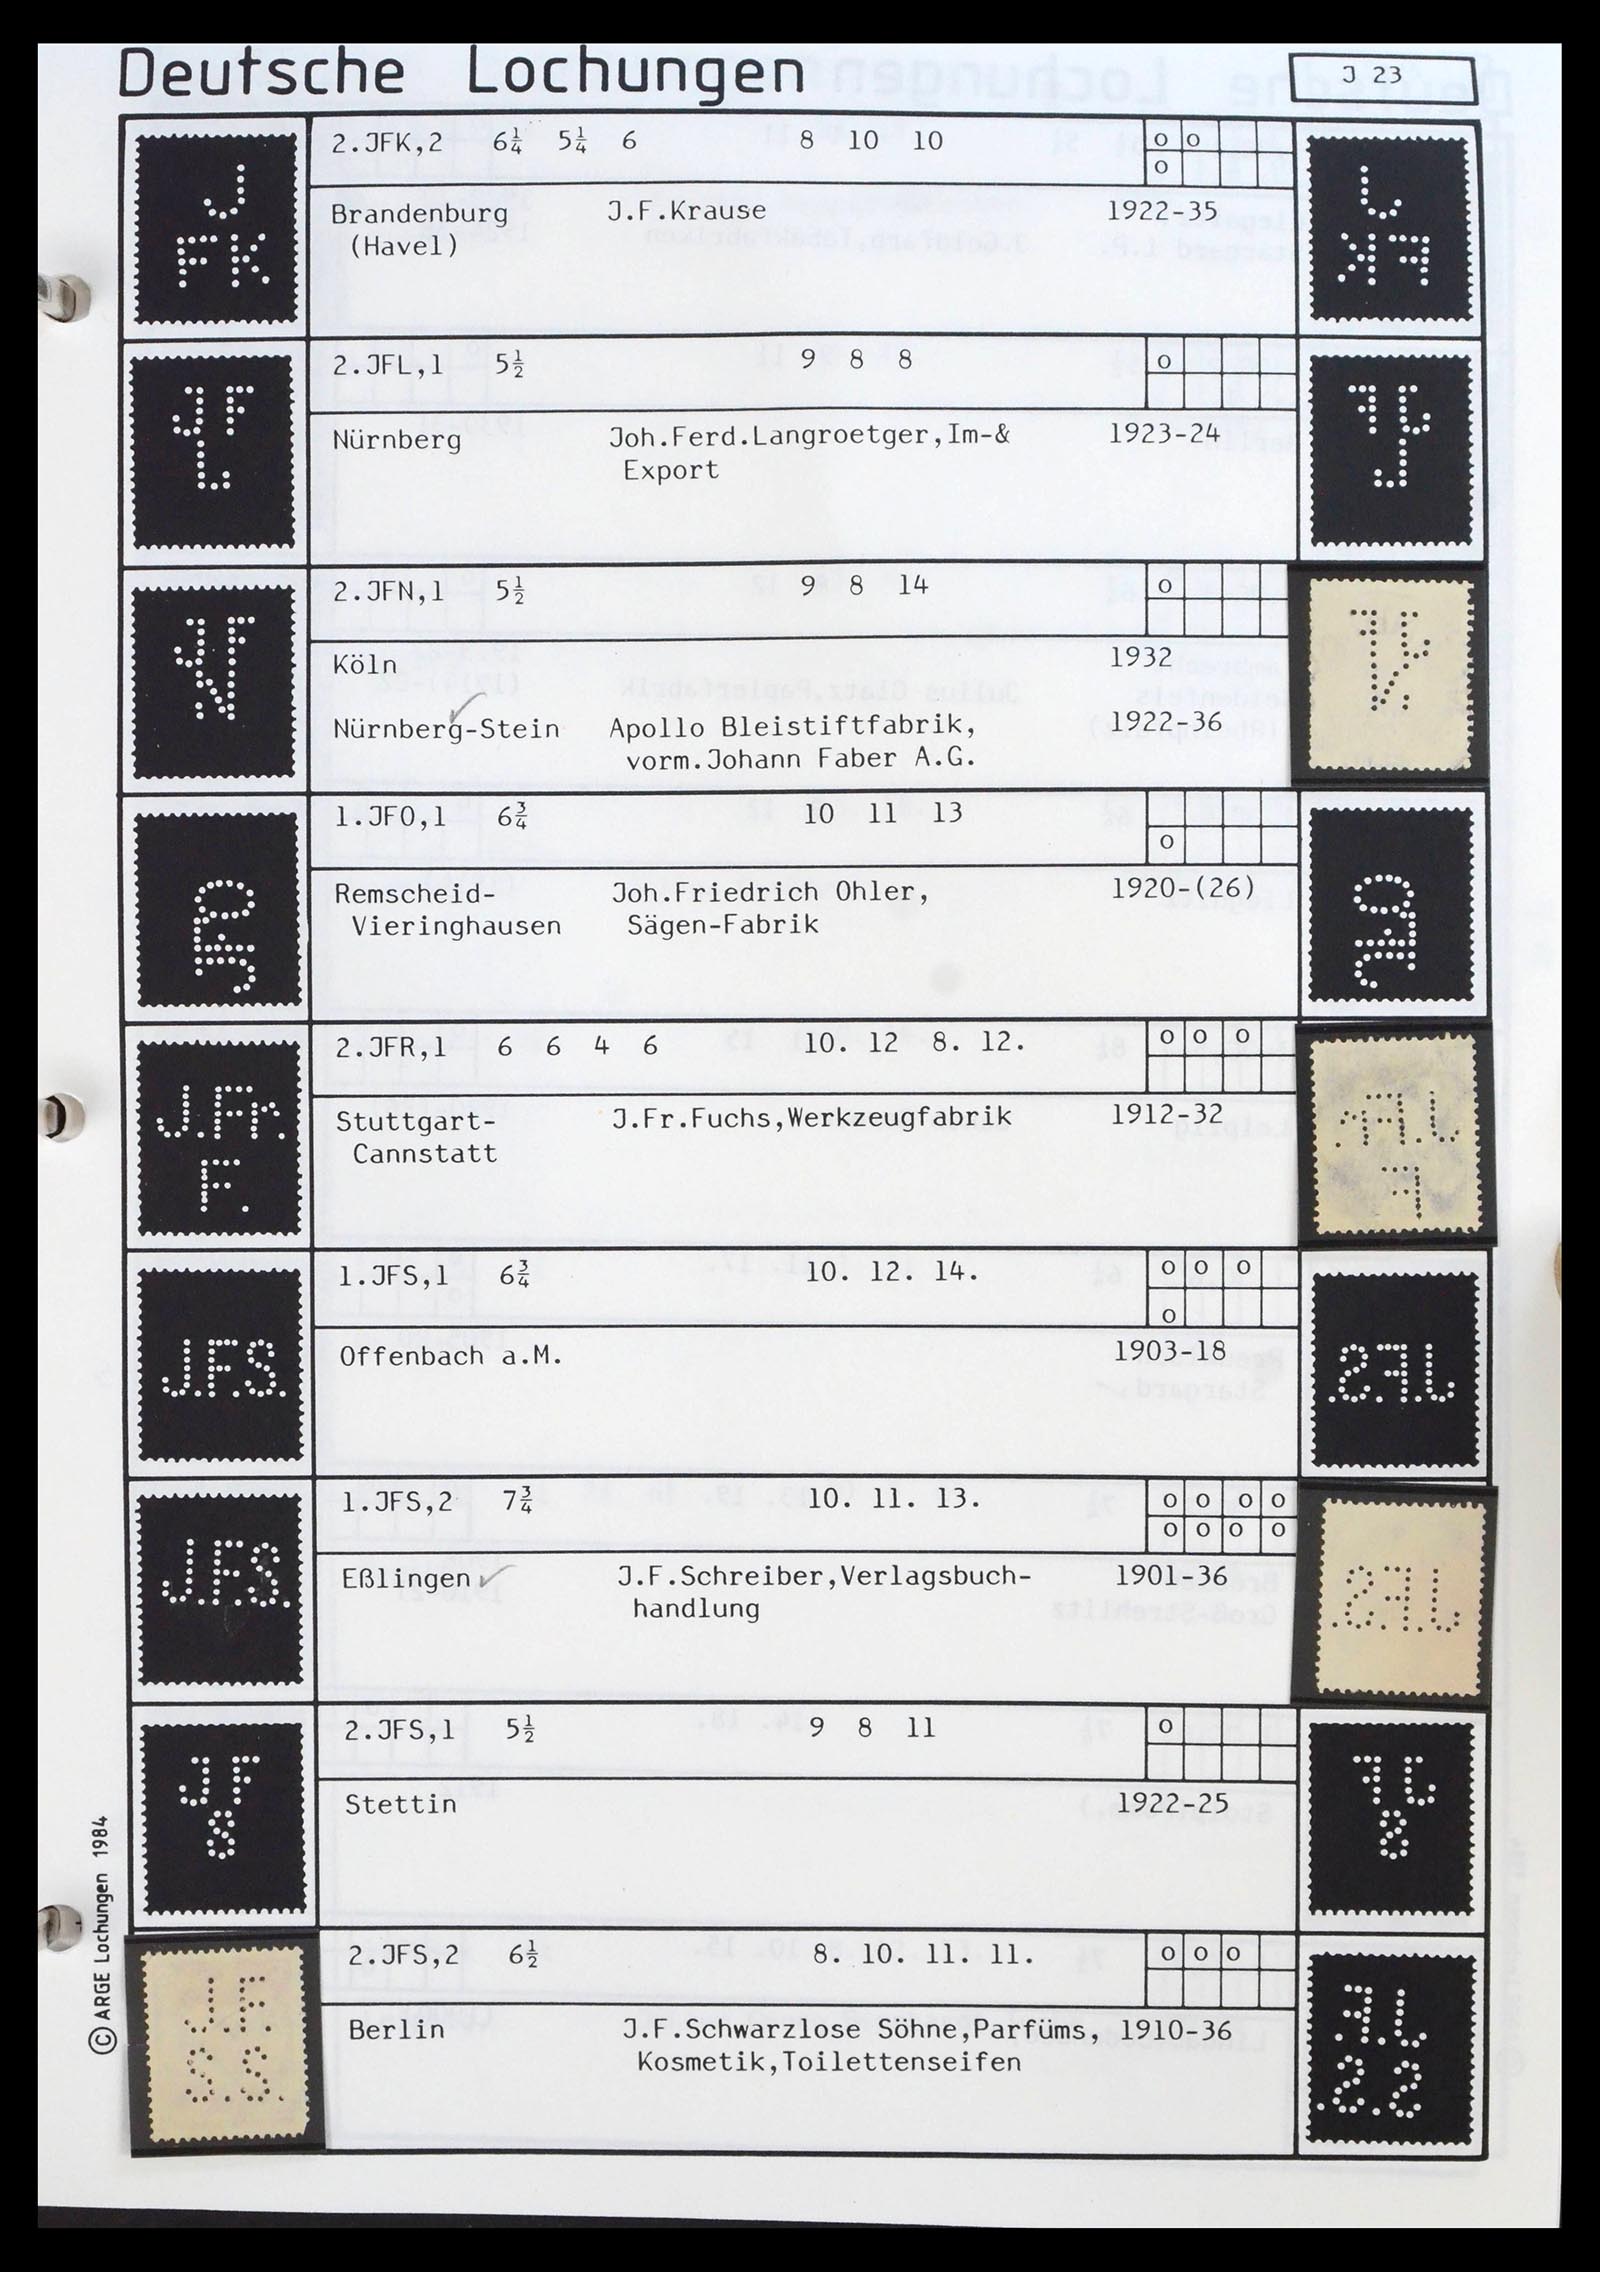 Deutsche Lochungen
J 23
2.JFK,2 6¼ 5¼ 6 8 10 10 o o
o
Brandenburg J.F.Krause 1922-35
(Havel)
J
FK
2.JFL,1 5½ 9 8 8 o
Nürnberg Joh.Ferd.Langroetger,Im-& 1923-24
Export
JF
L
2.JFN,1 5½ 9 8 14 o
Köln 1932
Nürnberg-Stein Apollo Bleistiftfabrik, 1922-36
vorm.Johann Faber A.G.
JF
N
1.JFO,1 6¾ 10 11 13
o
Remscheid- Joh.Friedrich Ohler, 1920-(26)
Vieringhausen Sägen-Fabrik
JFO
2.JFR,1 6 6 4 6 10. 12 8. 12. o o o
Stuttgart- J.Fr.Fuchs,Werkzeugfabrik 1912-32
Cannstatt
J.Fr.
F.
1.JFS,1 6¾ 10. 12. 14. o o o
o
Offenbach a.M. 1903-18
J.F.S.
1.JFS,2 7¾ 10. 11. 13. o o o o
o o o o
Eßlingen J.F.Schreiber,Verlagsbuch- 1901-36
handlung
J.F.S.
2.JFS,1 5½ 9 8 11 o
Stettin 1922-25
JF
S
2.JFS,2 6½ 8. 10. 11. 11. o o o
Berlin J.F.Schwarzlose Söhne,Parfüms, 1910-36
Kosmetik,Toilettenseifen
J.F.
S.S.
© ARGE Lochungen 1984